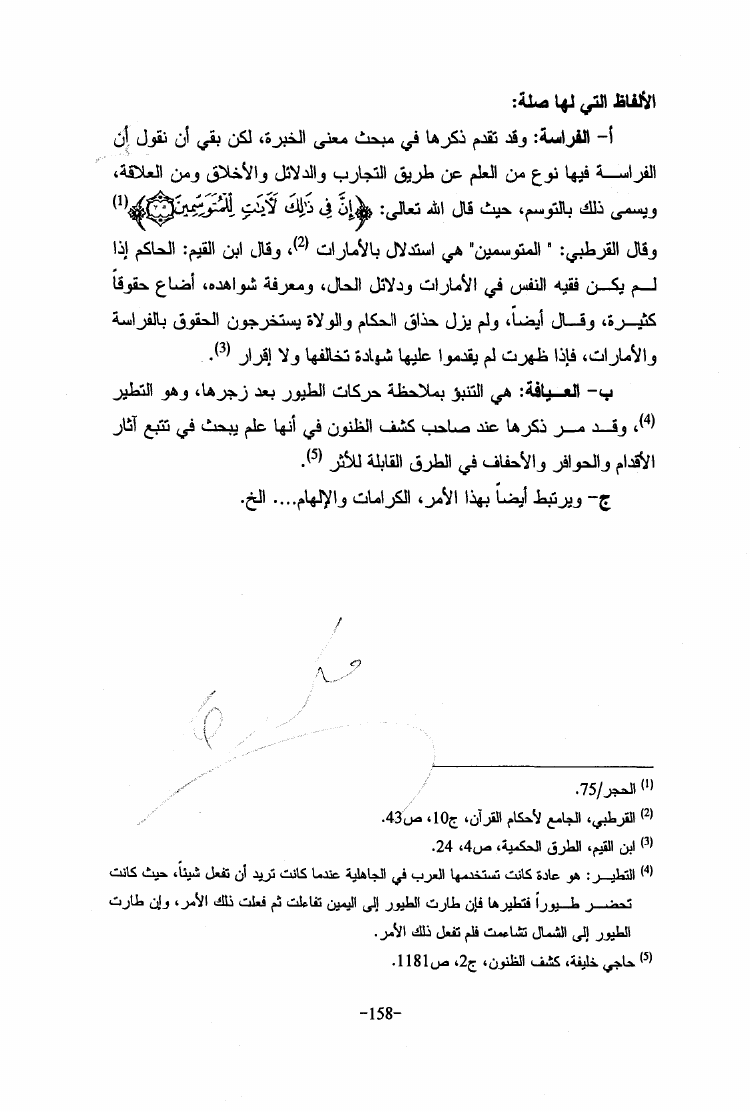 الألفاظ التي لها صلة:
أ- الفراسة: وقد تقدم ذكرها في مبحث معنى الخبرة، لكن بقي أن نقول إن
الفراسة فيها نوع من العلم عن طريق التجارب والدلائل والأخلاق ومن العلاقة،
ويسمى ذلك بالتوسم، حيث قال الله تعالى: ﴿إِنَّ فِي ذَٰلِكَ لَآيَاتٍ لِّلْمُتَوَسِّمِينَ ٧٥﴾(1)
وقال القرطبي: " المتوسمين" هي استدلال بالأمارات (2)، وقال ابن القيم: الحاكم إذا
لم يكن فقيه النفس في الأمارات ودلائل الحال، ومعرفة شواهده، أضاع حقوقاً
كثيرة، وقال أيضاً، ولم يزل حذاق الحكام والولاة يستخرجون الحقوق بالفراسة
والأمارات، فإذا ظهرت لم يقدموا عليها شهادة تخالفها ولا إقرار (3).
ب- العيافة: هي التنبؤ بملاحظة حركات الطيور بعد زجرها، وهو التطير
(4)، وقد مر ذكرها عند صاحب كشف الظنون في أنها علم يبحث في تتبع آثار
الأقدام والحوافر والأحفاف في الطرق القابلة للأثر (5).
ج- ويرتبط أيضاً بهذا الأمر، الكرامات والإلهام.... الخ.
(1) الحجر/75.
(2) القرطبي، الجامع لأحكام القرآن، ج10، ص43.
(3) ابن القيم، الطرق الحكمية، ص4، 24.
(4) التطير: هو عادة كانت تستخدمها العرب في الجاهلية عندما كانت تريد أن تفعل شيئاً، حيث كانت
تحضر طيوراً فتطيرها فإن طارت الطيور إلى اليمين تفاءلت ثم فعلت ذلك الأمر، وإن طارت
الطيور إلى الشمال تشاءمت فلم تفعل ذلك الأمر.
(5) حاجي خليفة، كشف الظنون، ج2، ص1181.
-158-